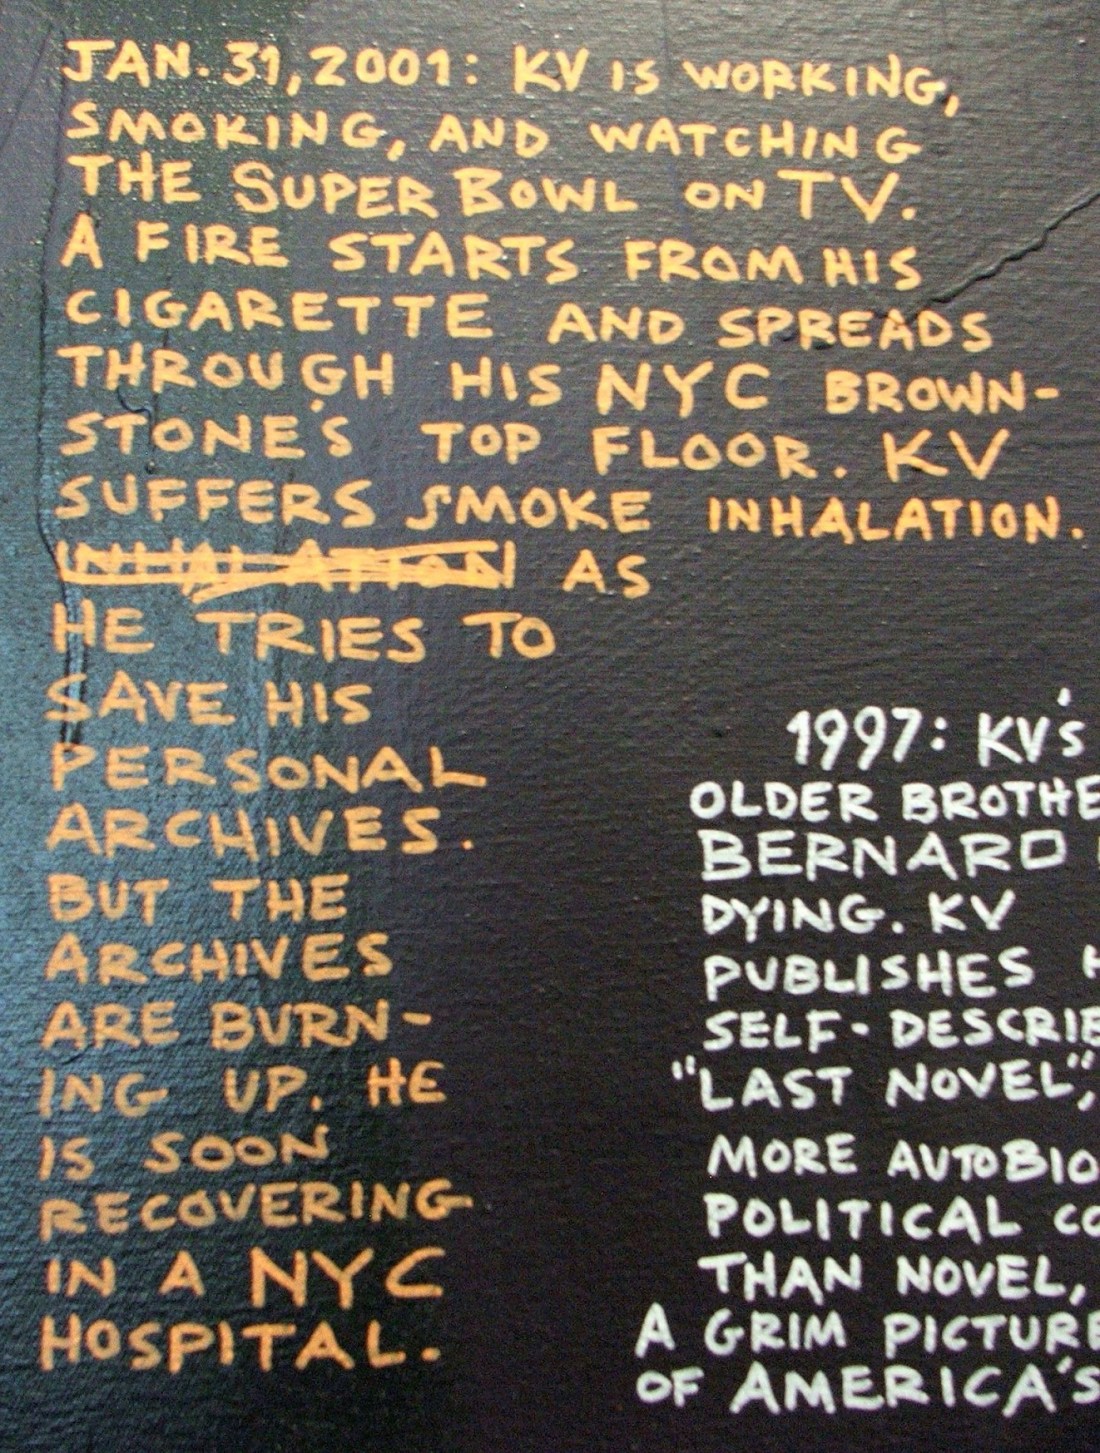 JAN. 31, 2001: KV IS WORKING,
SMOKING, AND WATCHING
THE SUPER BOWL ON TV.
A FIRE STARTS FROM HIS
CIGARETTE AND SPREADS
THROUGH HIS NYC BROWN-
STONE'S TOP FLOOR. KV
SUFFERS SMOKE INHALATION.
INHALATION AS
HE TRIES TO
SAVE HIS
PERSONAL
ARCHIVES.
BUT THE
ARCHIVES
ARE BURN-
ING UP. HE
IS SOON
RECOVERING
IN A NYC
HOSPITAL.
1997: KV'S
OLDER BROTHE
BERNARD
DYING. KV
PUBLISHES
SELF-DESCRIB
"LAST NOVEL",
MORE AUTOBIO
POLITICAL CO
THAN NOVEL,
A GRIM PICTURE
OF AMERICA'S